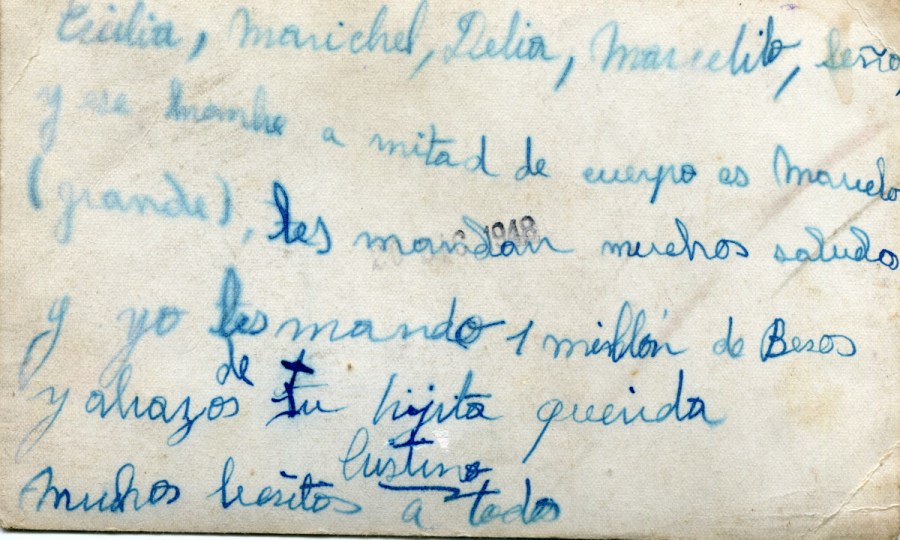 Cecilia, Marichel, Delia, Marcelito,
y ese hombre a mitad de cuerpo es Marcelo
(grande), les mandan muchos saludos
1948
y yo les mando 1 millón de Besos
y abrazos de tu hijita querida
muchos besitos a todos